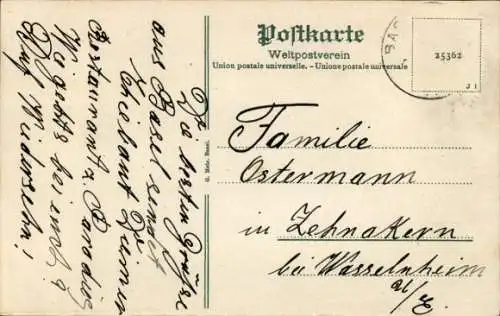 Postkarte
Weltpostverein
Union postale universelle. - Unione postale universale
BAS
25362
J 1
Familie
Ostermann
in Zehnakern
bei Wasselnheim
U/E.
Die besten Grüße
aus Basel sendet
Dir
Thiebaut
Restaurant z. Paradies
Wie geht's bei euch?
Auf Wiedersehn!